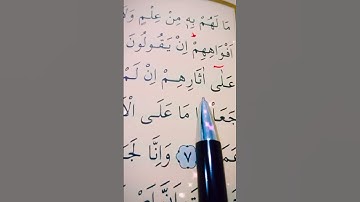 مَا لَهُمْ بِهٖ مِنْ عِلْمٍ وَلَا
اَفْوَاهِهِمْ اِنْ يَقُولُونَ
عَلٰٓى اٰثَارِهِمْ اِنْ لَمْ
مَا عَلَى الْاَ
٧ وَاِنَّا لَجَا